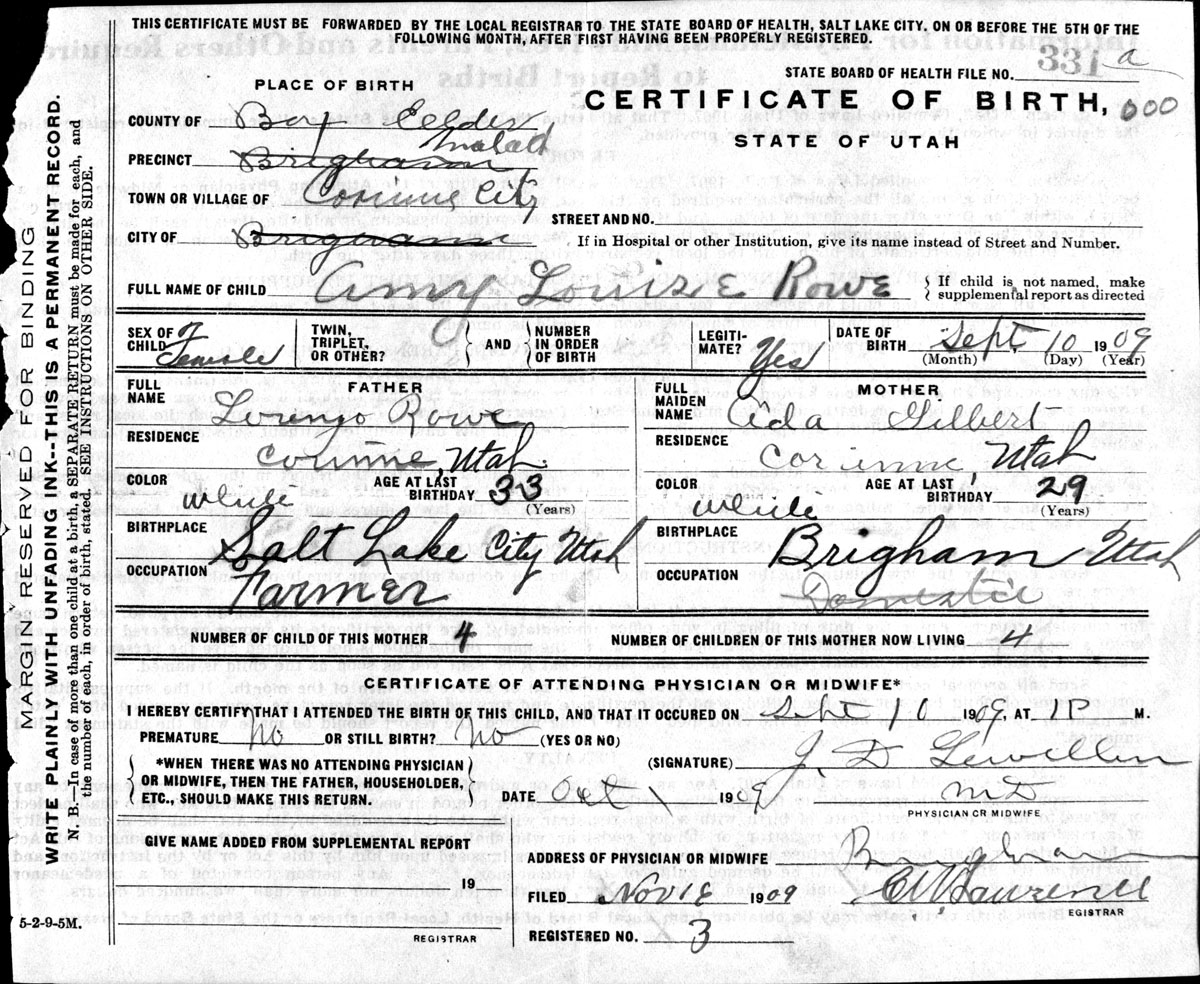 THIS CERTIFICATE MUST BE FORWARDED BY THE LOCAL REGISTRAR TO THE STATE BOARD OF HEALTH, SALT LAKE CITY, ON OR BEFORE THE 5TH OF THE
FOLLOWING MONTH, AFTER FIRST HAVING BEEN PROPERLY REGISTERED.
MARGIN RESERVED FOR BINDING
WRITE PLAINLY WITH UNFADING INK--THIS IS A PERMANENT RECORD.
N. B.—In case of more than one child at a birth, a SEPARATE RETURN must be made for each, and
the number of each, in order of birth, stated. SEE INSTRUCTIONS ON OTHER SIDE.
STATE BOARD OF HEALTH FILE NO. 331 a
PLACE OF BIRTH
CERTIFICATE OF BIRTH, 000
STATE OF UTAH
COUNTY OF Box Elder
Malad
PRECINCT Brigham
TOWN OR VILLAGE OF Corinne City
STREET AND NO.
CITY OF Brigham
If in Hospital or other Institution, give its name instead of Street and Number.
FULL NAME OF CHILD Amy Louize Rowe
If child is not named, make
supplemental report as directed
SEX OF CHILD F Female
TWIN, TRIPLET, OR OTHER?
AND
NUMBER IN ORDER OF BIRTH
LEGITI-MATE? Yes
DATE OF BIRTH Sept 10 1909
(Month) (Day) (Year)
FATHER
FULL NAME Lorenzo Rowe
RESIDENCE
Corinne, Utah
COLOR White
AGE AT LAST BIRTHDAY 33
(Years)
BIRTHPLACE
Salt Lake City Utah
OCCUPATION
Farmer
MOTHER
FULL MAIDEN NAME Ada Gilbert
RESIDENCE
Corinne, Utah
COLOR White
AGE AT LAST BIRTHDAY 29
(Years)
BIRTHPLACE
Brigham Utah
OCCUPATION
Domestic
NUMBER OF CHILD OF THIS MOTHER 4 NUMBER OF CHILDREN OF THIS MOTHER NOW LIVING 4
CERTIFICATE OF ATTENDING PHYSICIAN OR MIDWIFE*
I HEREBY CERTIFY THAT I ATTENDED THE BIRTH OF THIS CHILD, AND THAT IT OCCURED ON Sept 10 1909, AT 1P M.
PREMATURE No OR STILL BIRTH? No (YES OR NO)
*WHEN THERE WAS NO ATTENDING PHYSICIAN
OR MIDWIFE, THEN THE FATHER, HOUSEHOLDER,
ETC., SHOULD MAKE THIS RETURN.
(SIGNATURE) J. D. Lewellen
DATE Oct 1 1909 MD
PHYSICIAN OR MIDWIFE
GIVE NAME ADDED FROM SUPPLEMENTAL REPORT
19
REGISTRAR
ADDRESS OF PHYSICIAN OR MIDWIFE Brigham
FILED Nov 1909 Lawrence
EGISTRAR
REGISTERED NO. 3
5-2-9-5M.